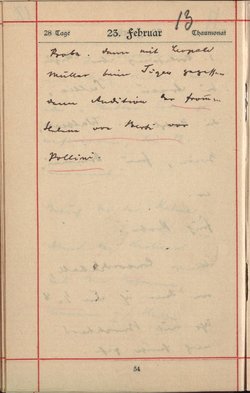 13
28 Tage 23. Februar Chaumonat
Probe. dann mit Leopold
Müller beim Tiger gegessen
dann Audition der
von Berti vor
Pollini.
54